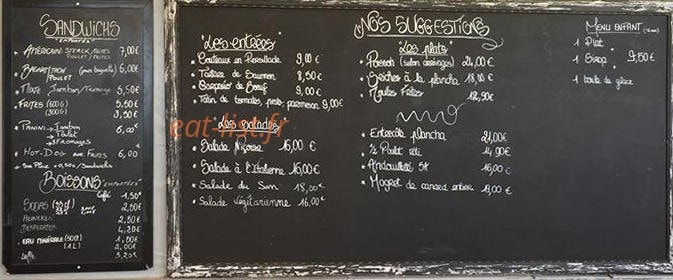 SANDWICHS
"EMPORTÉS"
AMÉRICAIN: STEACK, FRITES 7,00€
POULET / FRITES
BAGNAT / THON (pain baguette) 6,00€
POULET
MIXTE Jambon/Fromage 5,50€
FRITES (600G) 5,50€
(300G) 3,00€
PANINI → Jambon 6,00€
→ Poulet
→ 3 Fromages
HOT-DOG AUX FRITES 6,00
BOISSONS "EMPORTÉES"
Café 1,50€
SODAS 2,50€
HEINEKEN 2,50€
DESPERADOS 4,20€
EAU MINÉRALE (50cl) 1,50€
(1L) 2,00€
"Les entrées"
Couteaux en Persillade 9,00€
Tartare de Saumon 8,50€
Carpaccio de Boeuf 9,00€
Tatin de tomates, pesto, parmesan 9,00€
Les salades
Salade Niçoise 16,00€
Salade à l'Italienne 16,00€
Salade du Sun 18,00€
Salade Végétarienne 16,00€
NOS SUGGESTIONS
Les plats
Poisson (selon arrivages) 21,00€
Seiches à la plancha 18,00€
Moules Frites 12,90€
Entrecôte plancha 21,00€
1/2 Poulet rôti 14,90€
Andouillette 5A 16,00€
Magret de canard entier 19,00€
MENU ENFANT
1 Plat
1 Sirop 9,50€
1 boule de glace
eat-list.fr